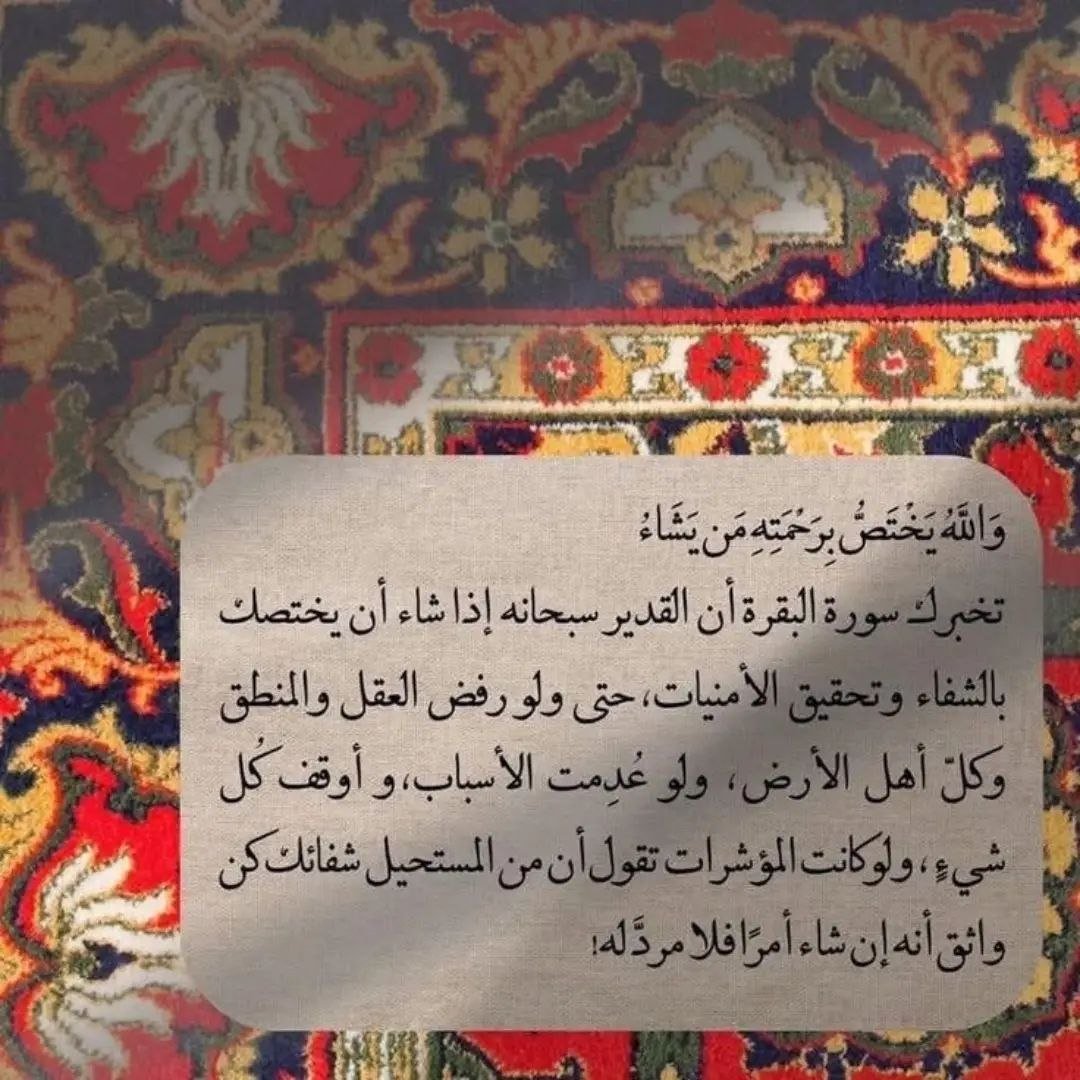 وَاللَّهُ يَخْتَصُّ بِرَحْمَتِهِ مَن يَشَاءُ
تخبرك سورة البقرة أن القدير سبحانه إذا شاء أن يختصك
بالشفاء وتحقيق الأمنيات، حتى ولو رفض العقل والمنطق
وكلّ أهل الأرض، ولو عُدِمت الأسباب، و أوقف كُل
شيءٍ، ولو كانت المؤشرات تقول أن من المستحيل شفائك كن
واثق أنه إن شاء أمرًا فلا مردَّ له!